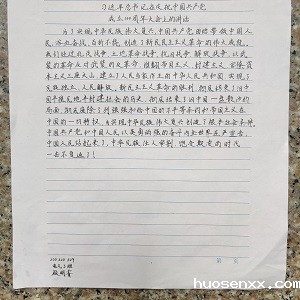 习近平总书记在庆祝中国共产党
成立100周年大会上的讲话
为了实现中华民族伟大复兴,中国共产党团结带领中国人
民,浴血奋战、百折不挠,创造了新民主主义革命的伟大成就。
我们经过北伐战争、土地革命战争、抗日战争、解放战争,以武
装的革命反对武装的反革命,推翻帝国主义、封建主义、官僚资
本主义三座大山,建立了人民当家作主的中华人民共和国,实现了
民族独立、人民解放。新民主主义革命的胜利,彻底结束了旧
中国半殖民地半封建社会的历史,彻底结束了旧中国一盘散沙的
局面,彻底废除了列强强加给中国的不平等条约和帝国主义在
中国的一切特权,为实现中华民族伟大复兴创造了根本社会条件。
中国共产党和中国人民以英勇顽强的奋斗向世界庄严宣告,
中国人民站起来了,中华民族任人宰割、饱受欺凌的时代
一去不复返了!
第 页
huosenxx.com